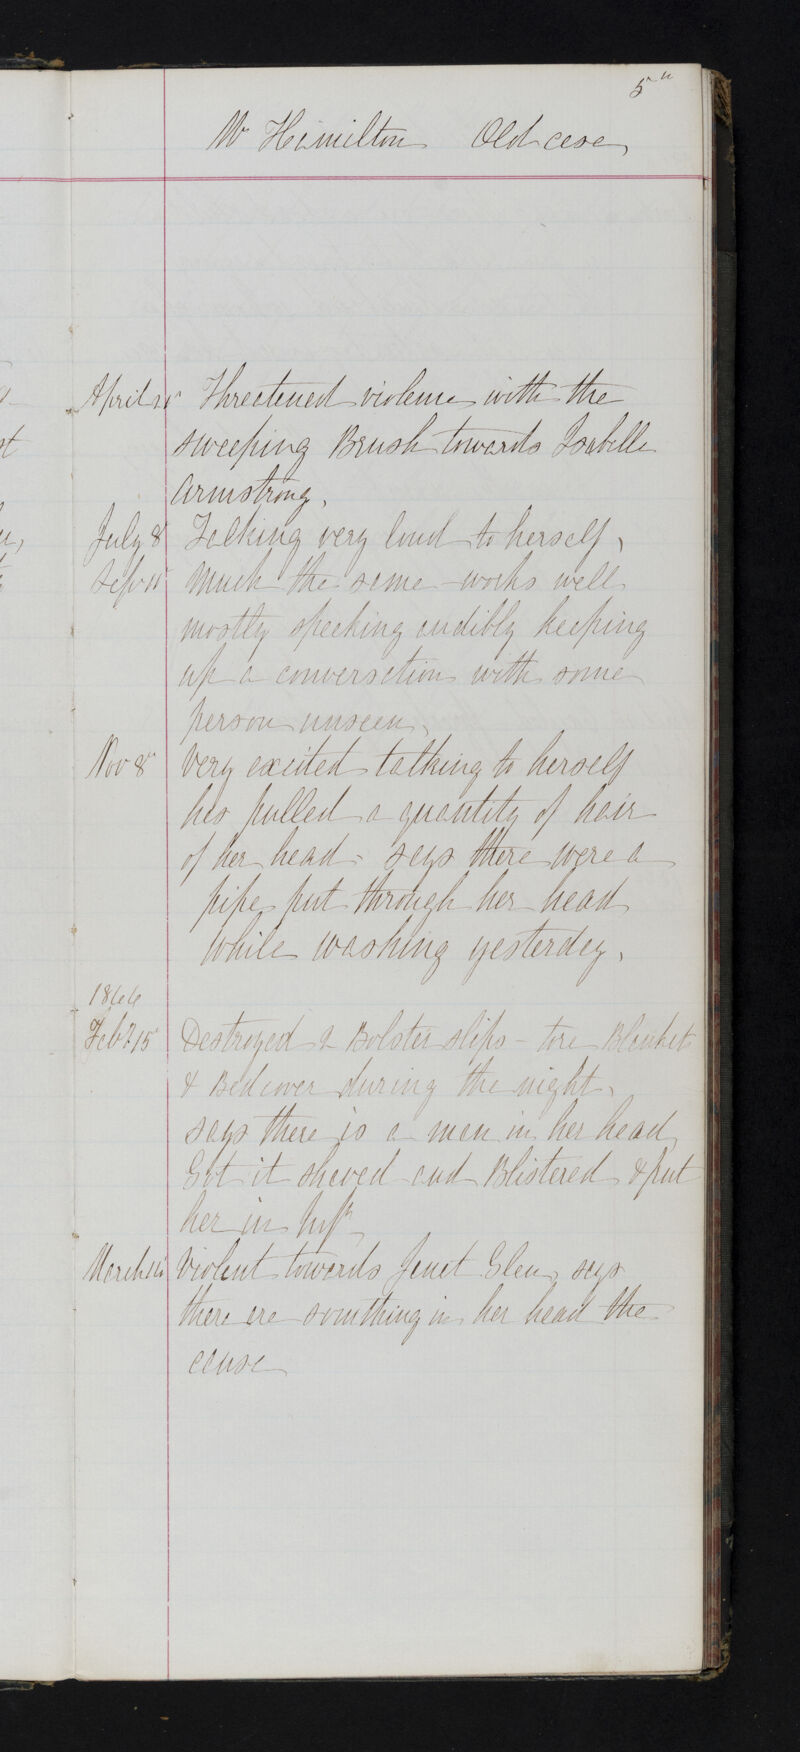 5"
Mr Hamilton Old case,
April 20 Threatened violence with the
sweeping Brush towards Isabella
Armstrong,
July 8 Talking very loud to herself,
Sep 11 Much the same works well
mostly speaking audibly keeping
up a conversation with some
person unseen,
Nov 8" Very excited talking to herself
has pulled a quantity of hair
of her head - says there were a
pipe put through her head
while washing yesterday,
1866
Feby 15 Destroyed 2 Bolster slips - tore Blanket
& Bedcover during the night,
says there is a man in her head
Got it shaved and Blistered & put
her in
March Violent towards Janet Glen, says
there are somthing in her head the
cause